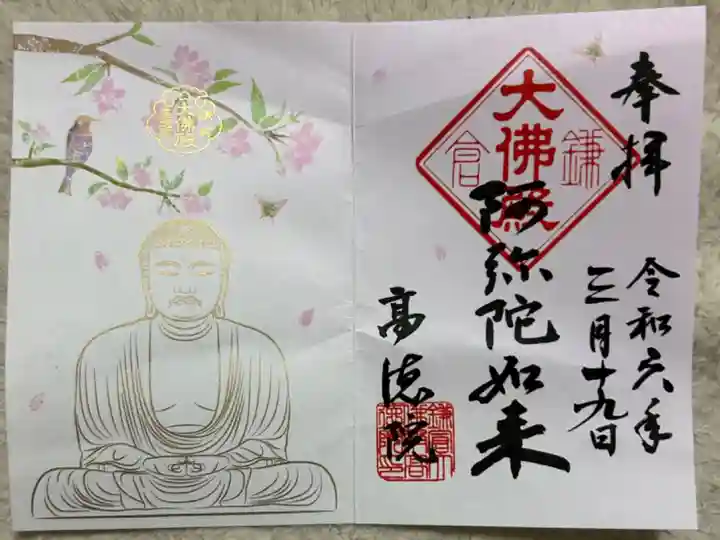 奉拝
令和六年
三月十九日
大佛殿
鎌倉
阿弥陀如来
高徳院